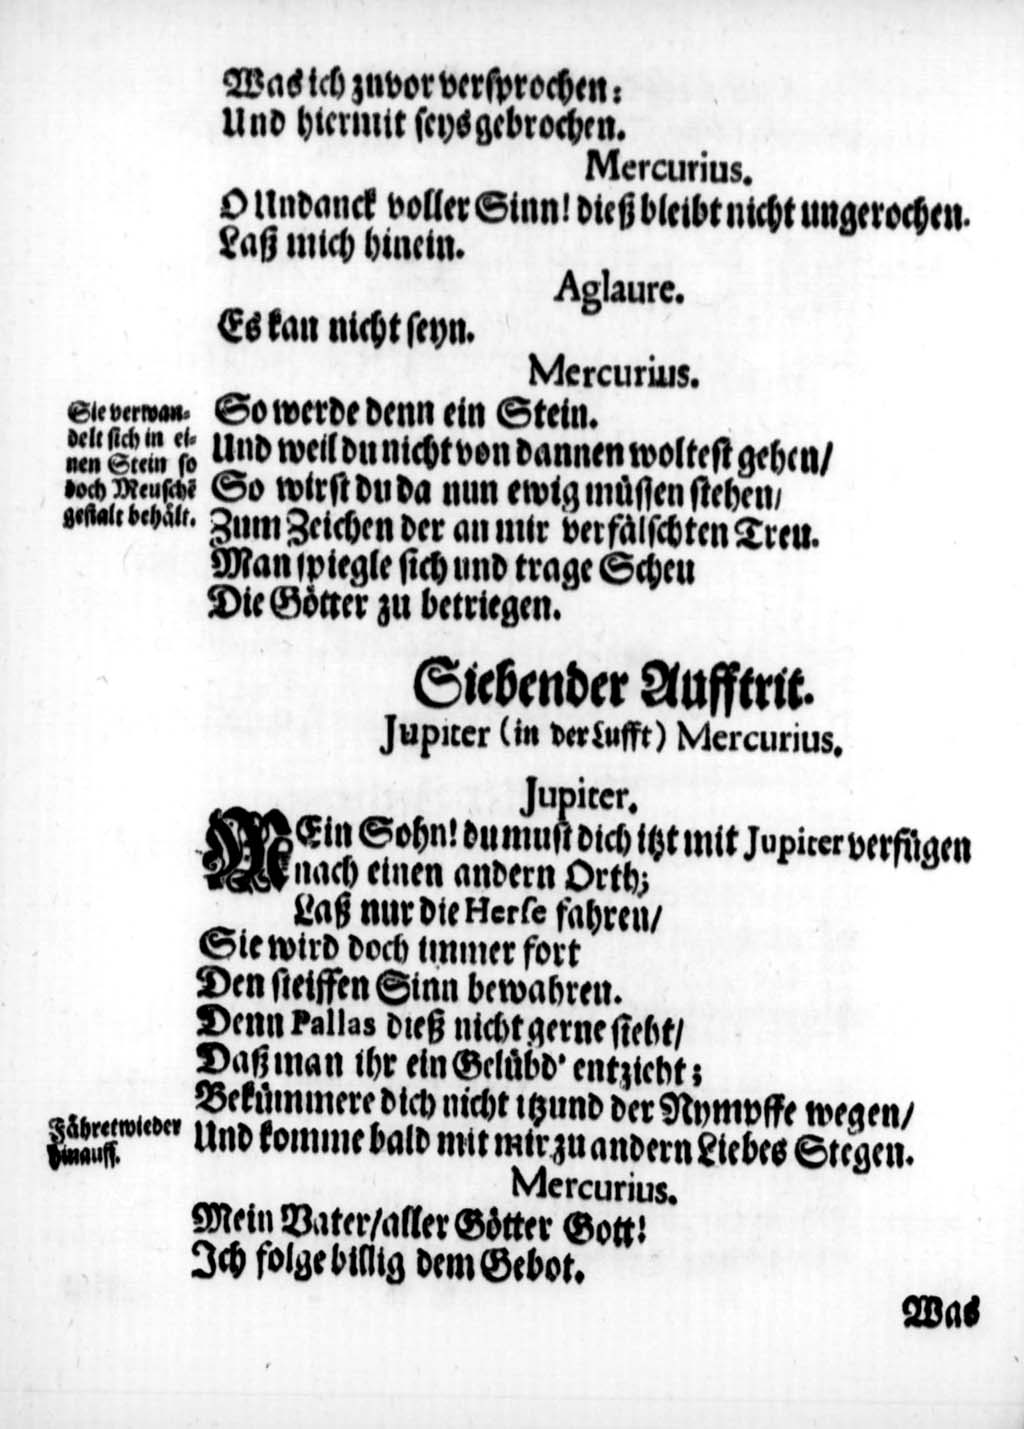 Was ich zuvor versprochen:
Und hiermit seys gebrochen.
Mercurius.
O Undanck voller Sinn! dieß bleibt nicht ungerochen.
Laß mich hinein.
Aglaure.
Es kan nicht seyn.
Mercurius.
So werde denn ein Stein.
Und weil du nicht von dannen woltest gehen/
So wirst du da nun ewig müssen stehen/
Zum Zeichen der an mir verfälschten Treu.
Man spiegle sich und trage Scheu
Die Götter zu betriegen.
Sie verwan-
delt sich in ei-
nen Stein so
doch Meuschē
gestalt behält.
Siebender Aufftrit.
Jupiter (in der Lufft) Mercurius.
Jupiter.
MEin Sohn! du must dich itzt mit Jupiter verfügen
nach einen andern Orth;
Laß nur die Herse fahren/
Sie wird doch immer fort
Den steiffen Sinn bewahren.
Denn Pallas dieß nicht gerne sieht/
Daß man ihr ein Gelübd' entzieht;
Bekümmere dich nicht itzund der Nympffe wegen/
Und komme bald mit mir zu andern Liebes Stegen.
Fähret wieder
hinauff.
Mercurius.
Mein Vater/aller Götter Gott!
Ich folge billig dem Gebot.
Was